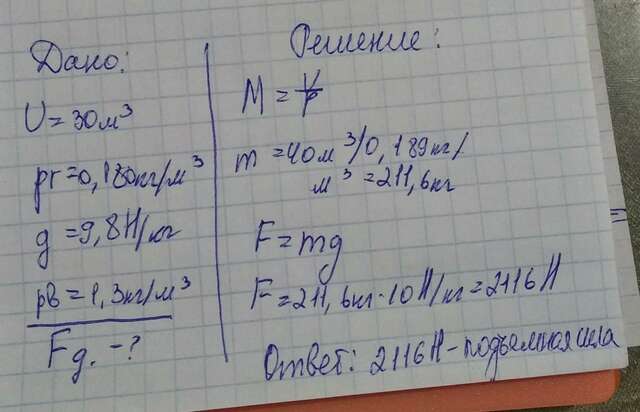 Дано:
V = 30 м³
ρг = 0,180 кг/м³
g = 9,8 Н/кг
ρв = 1,3 кг/м³
Fg. - ?
Решение:
M = V/ρ
m = 40 м³/0,189 кг/
м³ = 211,6 кг
F = mg
F = 211,6 кг · 10 Н/кг = 2116 Н
Ответ: 2116 Н - подъемная сила